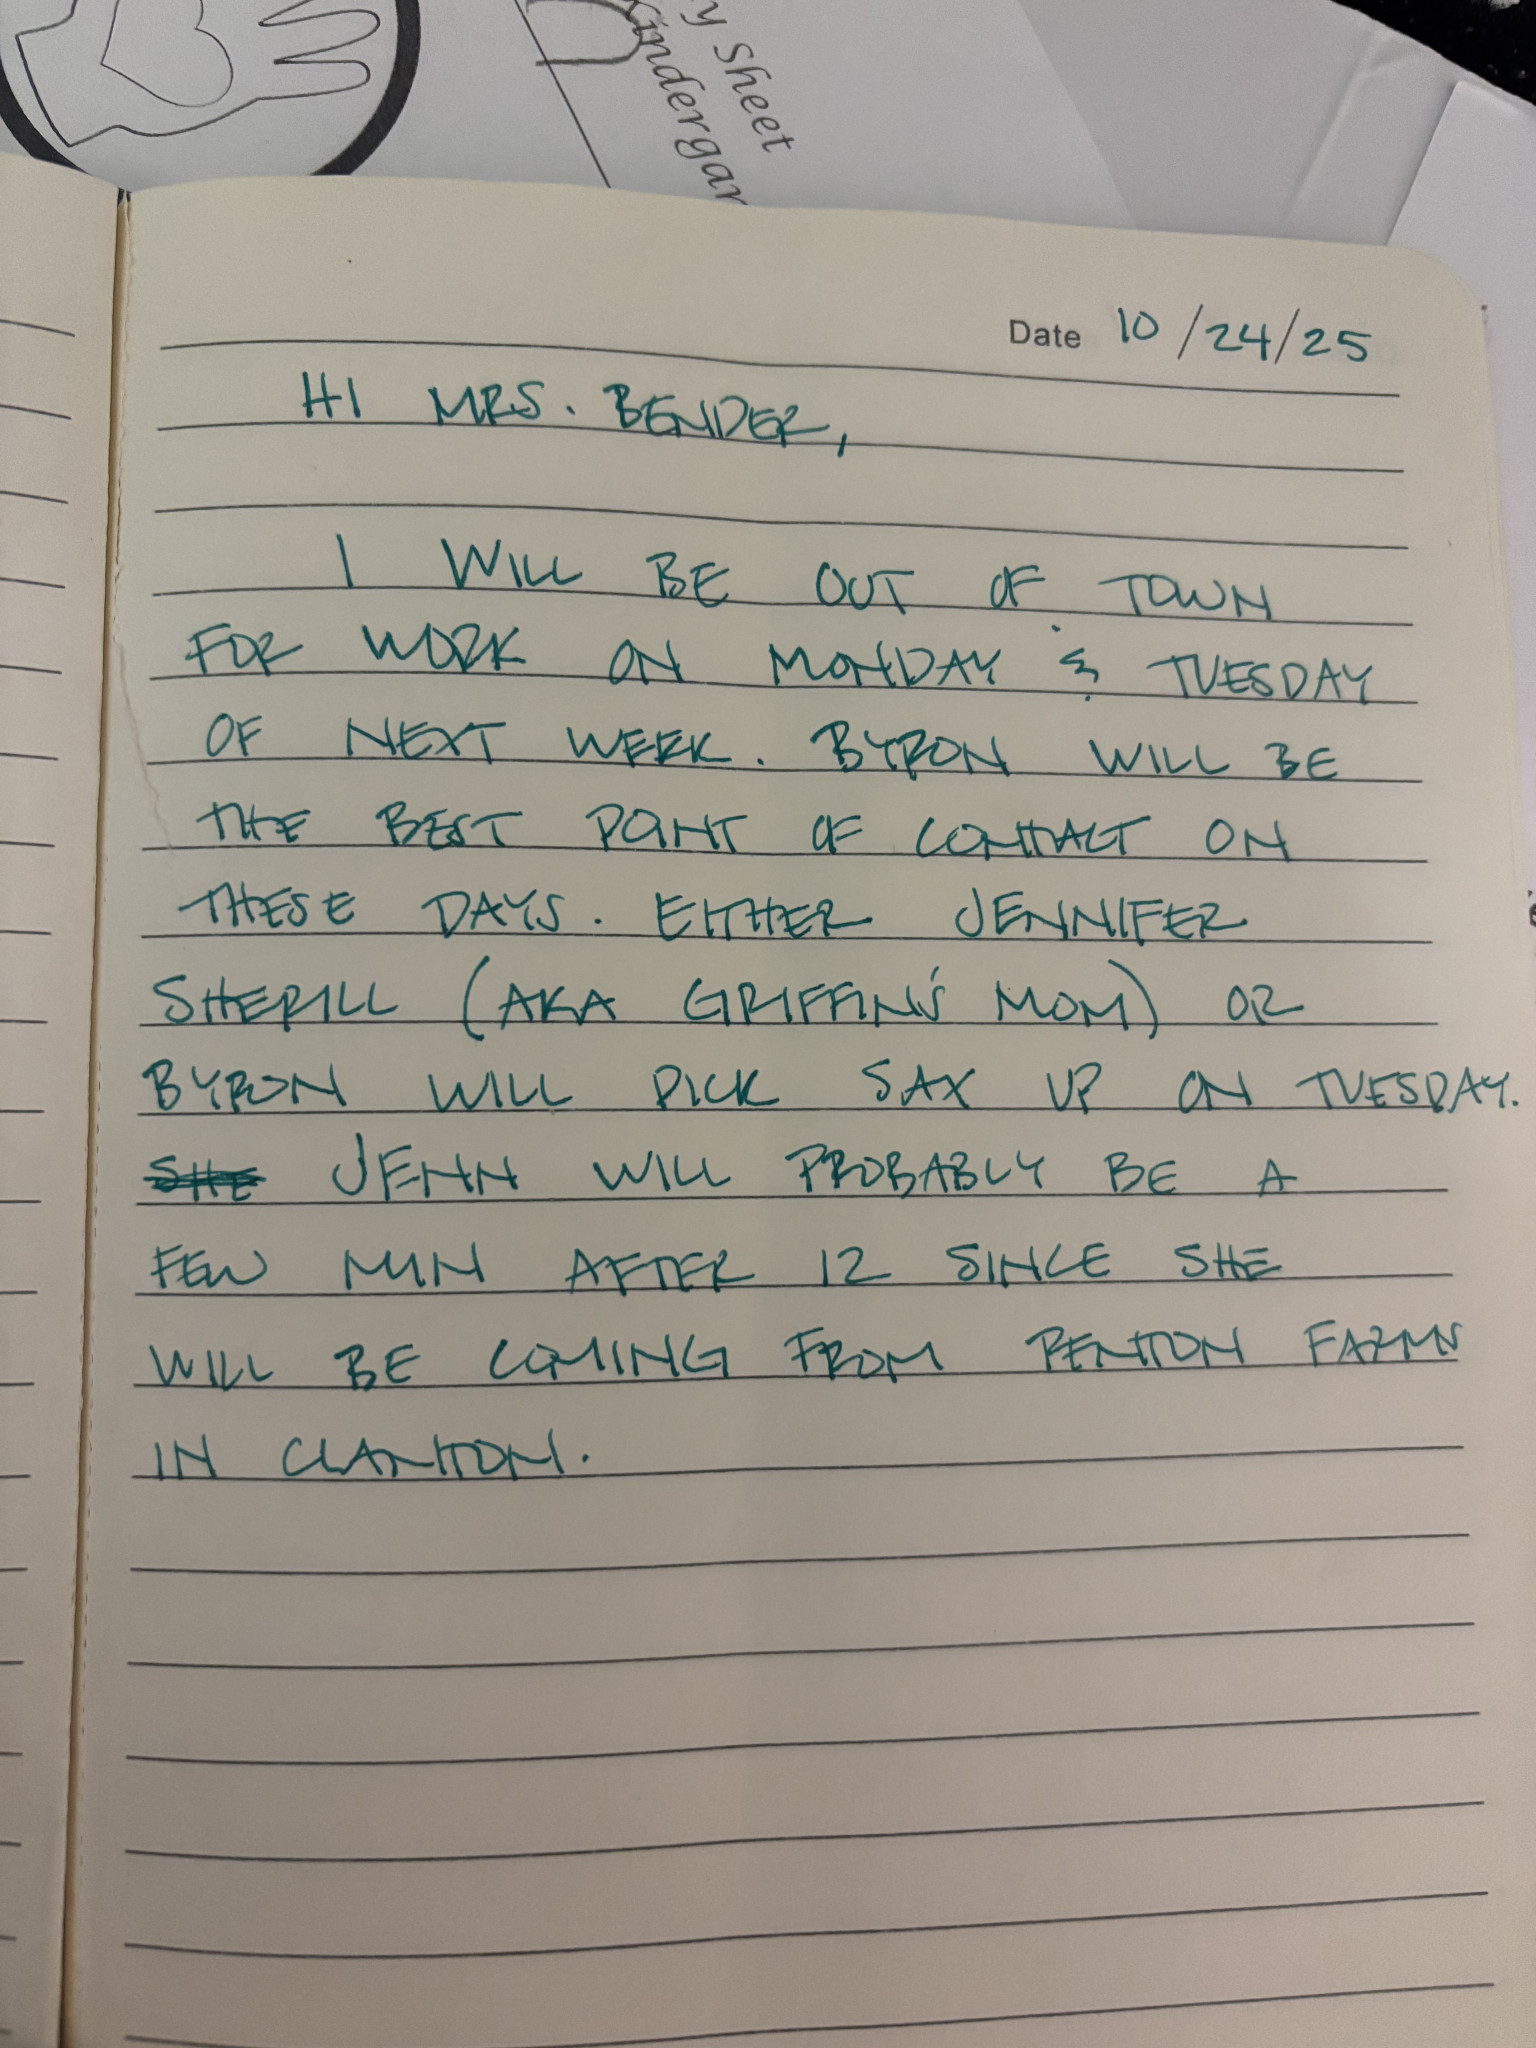 y Sheet
Kindergar
Date 10/24/25
HI MRS. BENDER,
I WILL BE OUT OF TOWN
FOR WORK ON MONDAY & TUESDAY
OF NEXT WEEK. BYRON WILL BE
THE BEST POINT OF CONTACT ON
THESE DAYS. EITHER JENNIFER
SHERILL (AKA GRIFFIN'S MOM) OR
BYRON WILL PICK SAX UP ON TUESDAY.
SHE JENN WILL PROBABLY BE A
FEW MIN AFTER 12 SINCE SHE
WILL BE COMING FROM PENTON FARMS
IN CLANTON.